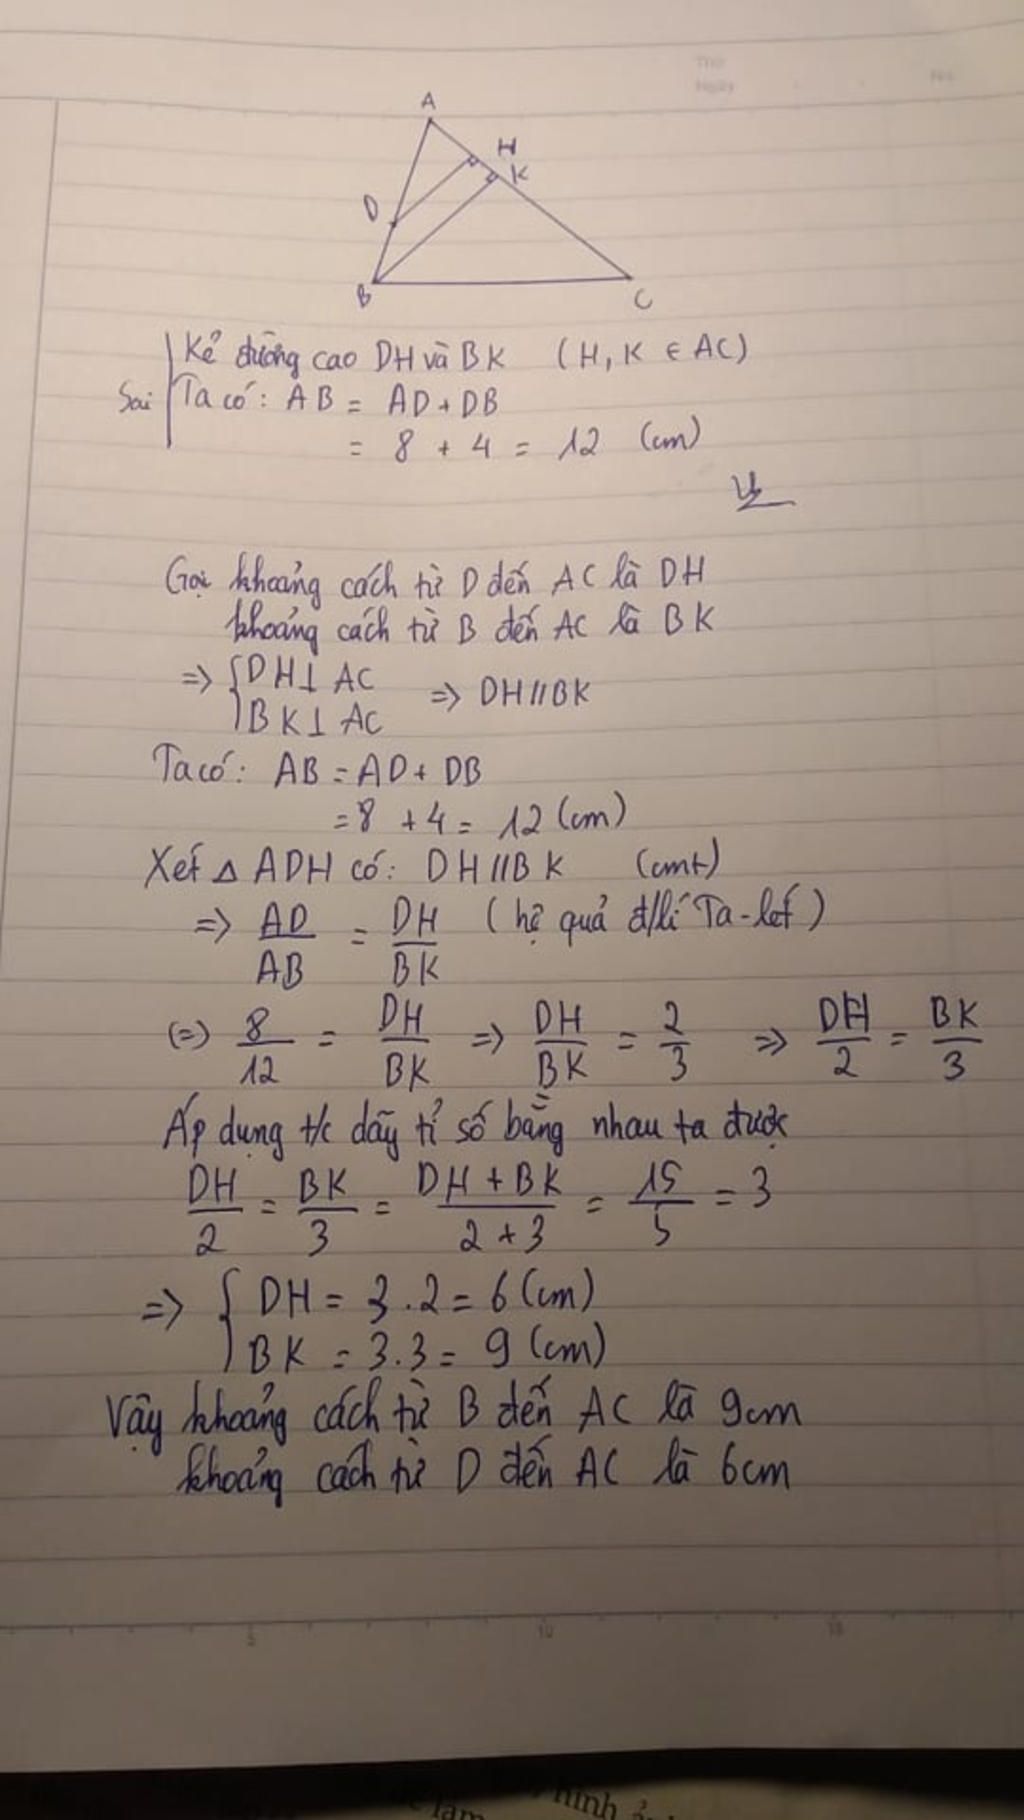 Thứ
Ngày
No.
A
H
K
D
B
C
Kẻ đường cao DH và BK (H, K ∈ AC)
Sai Ta có: AB = AD + DB
= 8 + 4 = 12 (cm)
Gọi khoảng cách từ D đến AC là DH
khoảng cách từ B đến AC là BK
=> { DH ⊥ AC
BK ⊥ AC => DH // BK
Ta có: AB = AD + DB
= 8 + 4 = 12 (cm)
Xét Δ ADH có: DH // BK (cmt)
=> AD/AB = DH/BK (hệ quả đ/lí Ta-lét)
(=) 8/12 = DH/BK => DH/BK = 2/3 => DH/2 = BK/3
Áp dụng t/c dãy tỉ số bằng nhau ta được
DH/2 = BK/3 = DH + BK/2 + 3 = 15/5 = 3
=> { DH = 3 . 2 = 6 (cm)
BK = 3 . 3 = 9 (cm)
Vậy khoảng cách từ B đến AC là 9cm
khoảng cách từ D đến AC là 6cm
5 10 15
hình